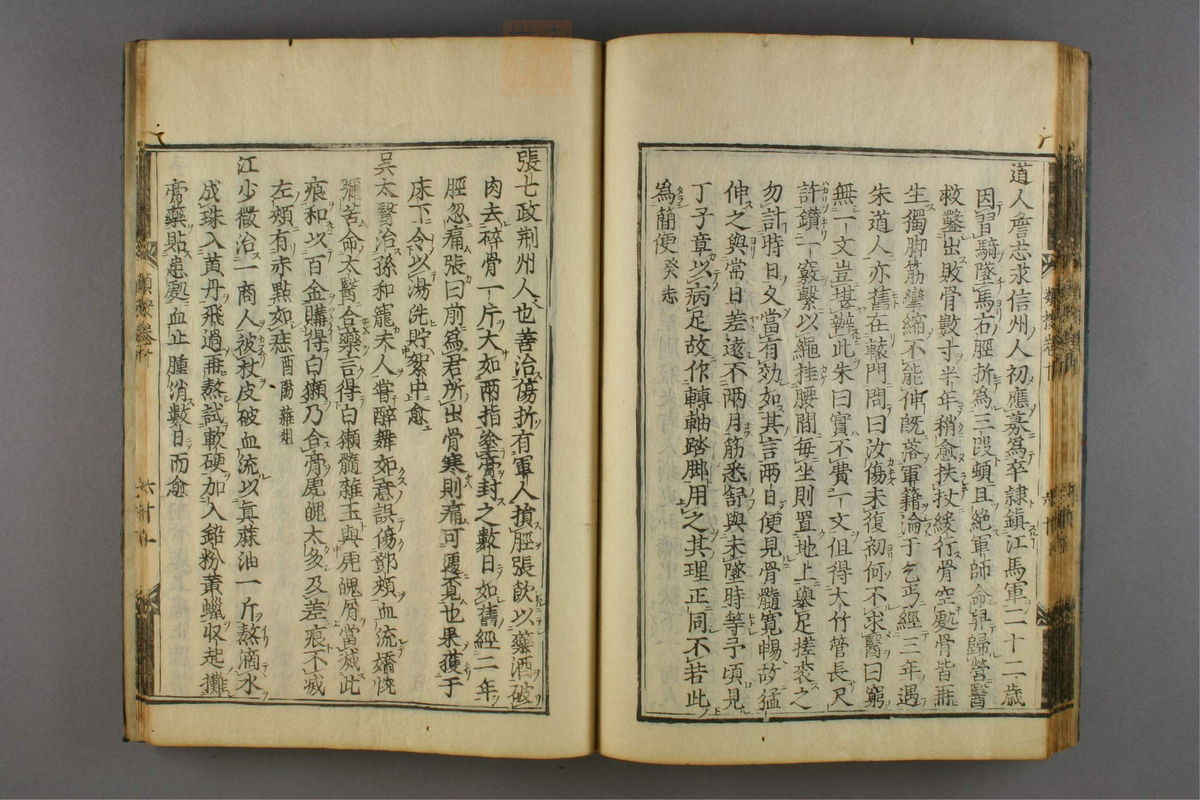 道人詹志永信州人初應募爲卒隷鎭江馬軍二十二歳
因習騎墜馬右脛折爲三段頓且絶軍師命舁歸營醫
救鑿出敗骨數寸半年稍愈扶杖緩行骨空處骨皆再
生獨脚筋攣縮不能伸既落軍籍淪于乞丐經三年遇
朱道人亦舊在轅門問曰汝傷未復初何不求醫曰窮
無一文豈堪辦此朱曰實不費一文但得大竹管長尺
許鑚一竅繫以繩挂腰間毎坐則置地上舉足搓衮之
勿計時日久當有効如其言兩日便見骨髓寛暢故猛
伸之與常日差遠不兩月筋悉舒與未墜時等予頃見
丁子章以病足故作轉軸踏脚用之其理正同不若此
爲簡便 癸志
張七政荆州人也善治傷折有軍人損脛張飲以藥酒破
肉去碎骨一片大如兩指塗膏封之數日如舊經二年
脛忽痛張曰前爲君所出骨寒則痛可遽覓也果獲于
床下令以湯洗貯絮中愈
呉太醫治孫和寵夫人嘗醉舞如意誤傷鄧頰血流嬌惋
彌苦命太醫合藥言得白獺髓雜玉與虎魄屑當滅此
痕和以百金購得白獺乃合膏虎魄太多及差痕不滅
左頰有赤點如痣 酉陽雜俎
江少微治一商人被杖皮破血流以眞蔴油一斤熬滴水
成珠入黄丹飛過再熬試軟硬加入鉛粉黄蠟収起攤
膏藥貼患處血止腫消數日而愈